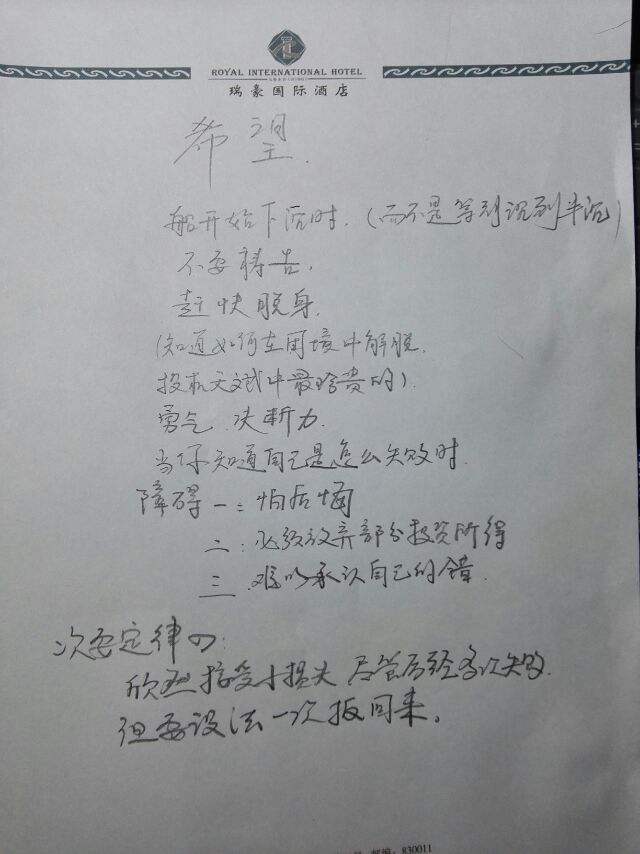 ROYAL INTERNATIONAL HOTEL
瑞豪国际酒店
希望.
船开始下沉时.（而不是等到沉到半沉）
不要祷告,
赶快脱身.
(知道如何在困境中解脱.
投机天赋中最珍贵的)
勇气.决断力.
当你知道自己是怎么失败时.
障碍一：怕后悔
二：必须放弃部分投资所得
三.难以承认自己的错.
次要定律四:
欣然接受小损失 尽管历经多次失败.
但要设法一次扳回来。
邮编: 830011